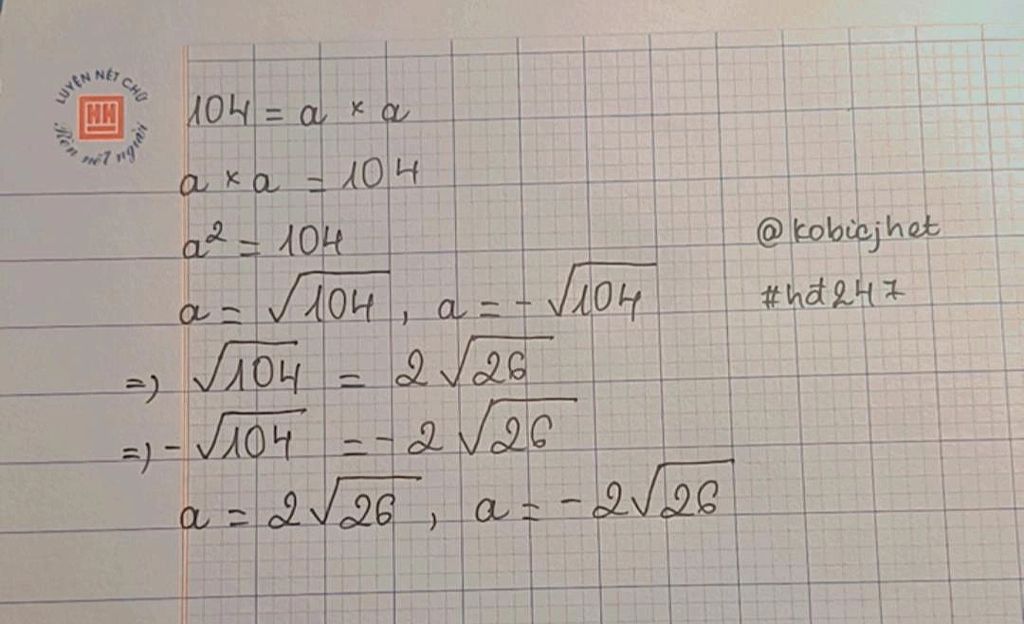 LUYỆN NÉT CHỮ
HH
Rèn nết người
104 = a × a
a × a = 104
a² = 104
a = √104 , a = -√104
=) √104 = 2√26
=) -√104 = -2√26
a = 2√26 , a = -2√26
@kobicjhet
#hd247